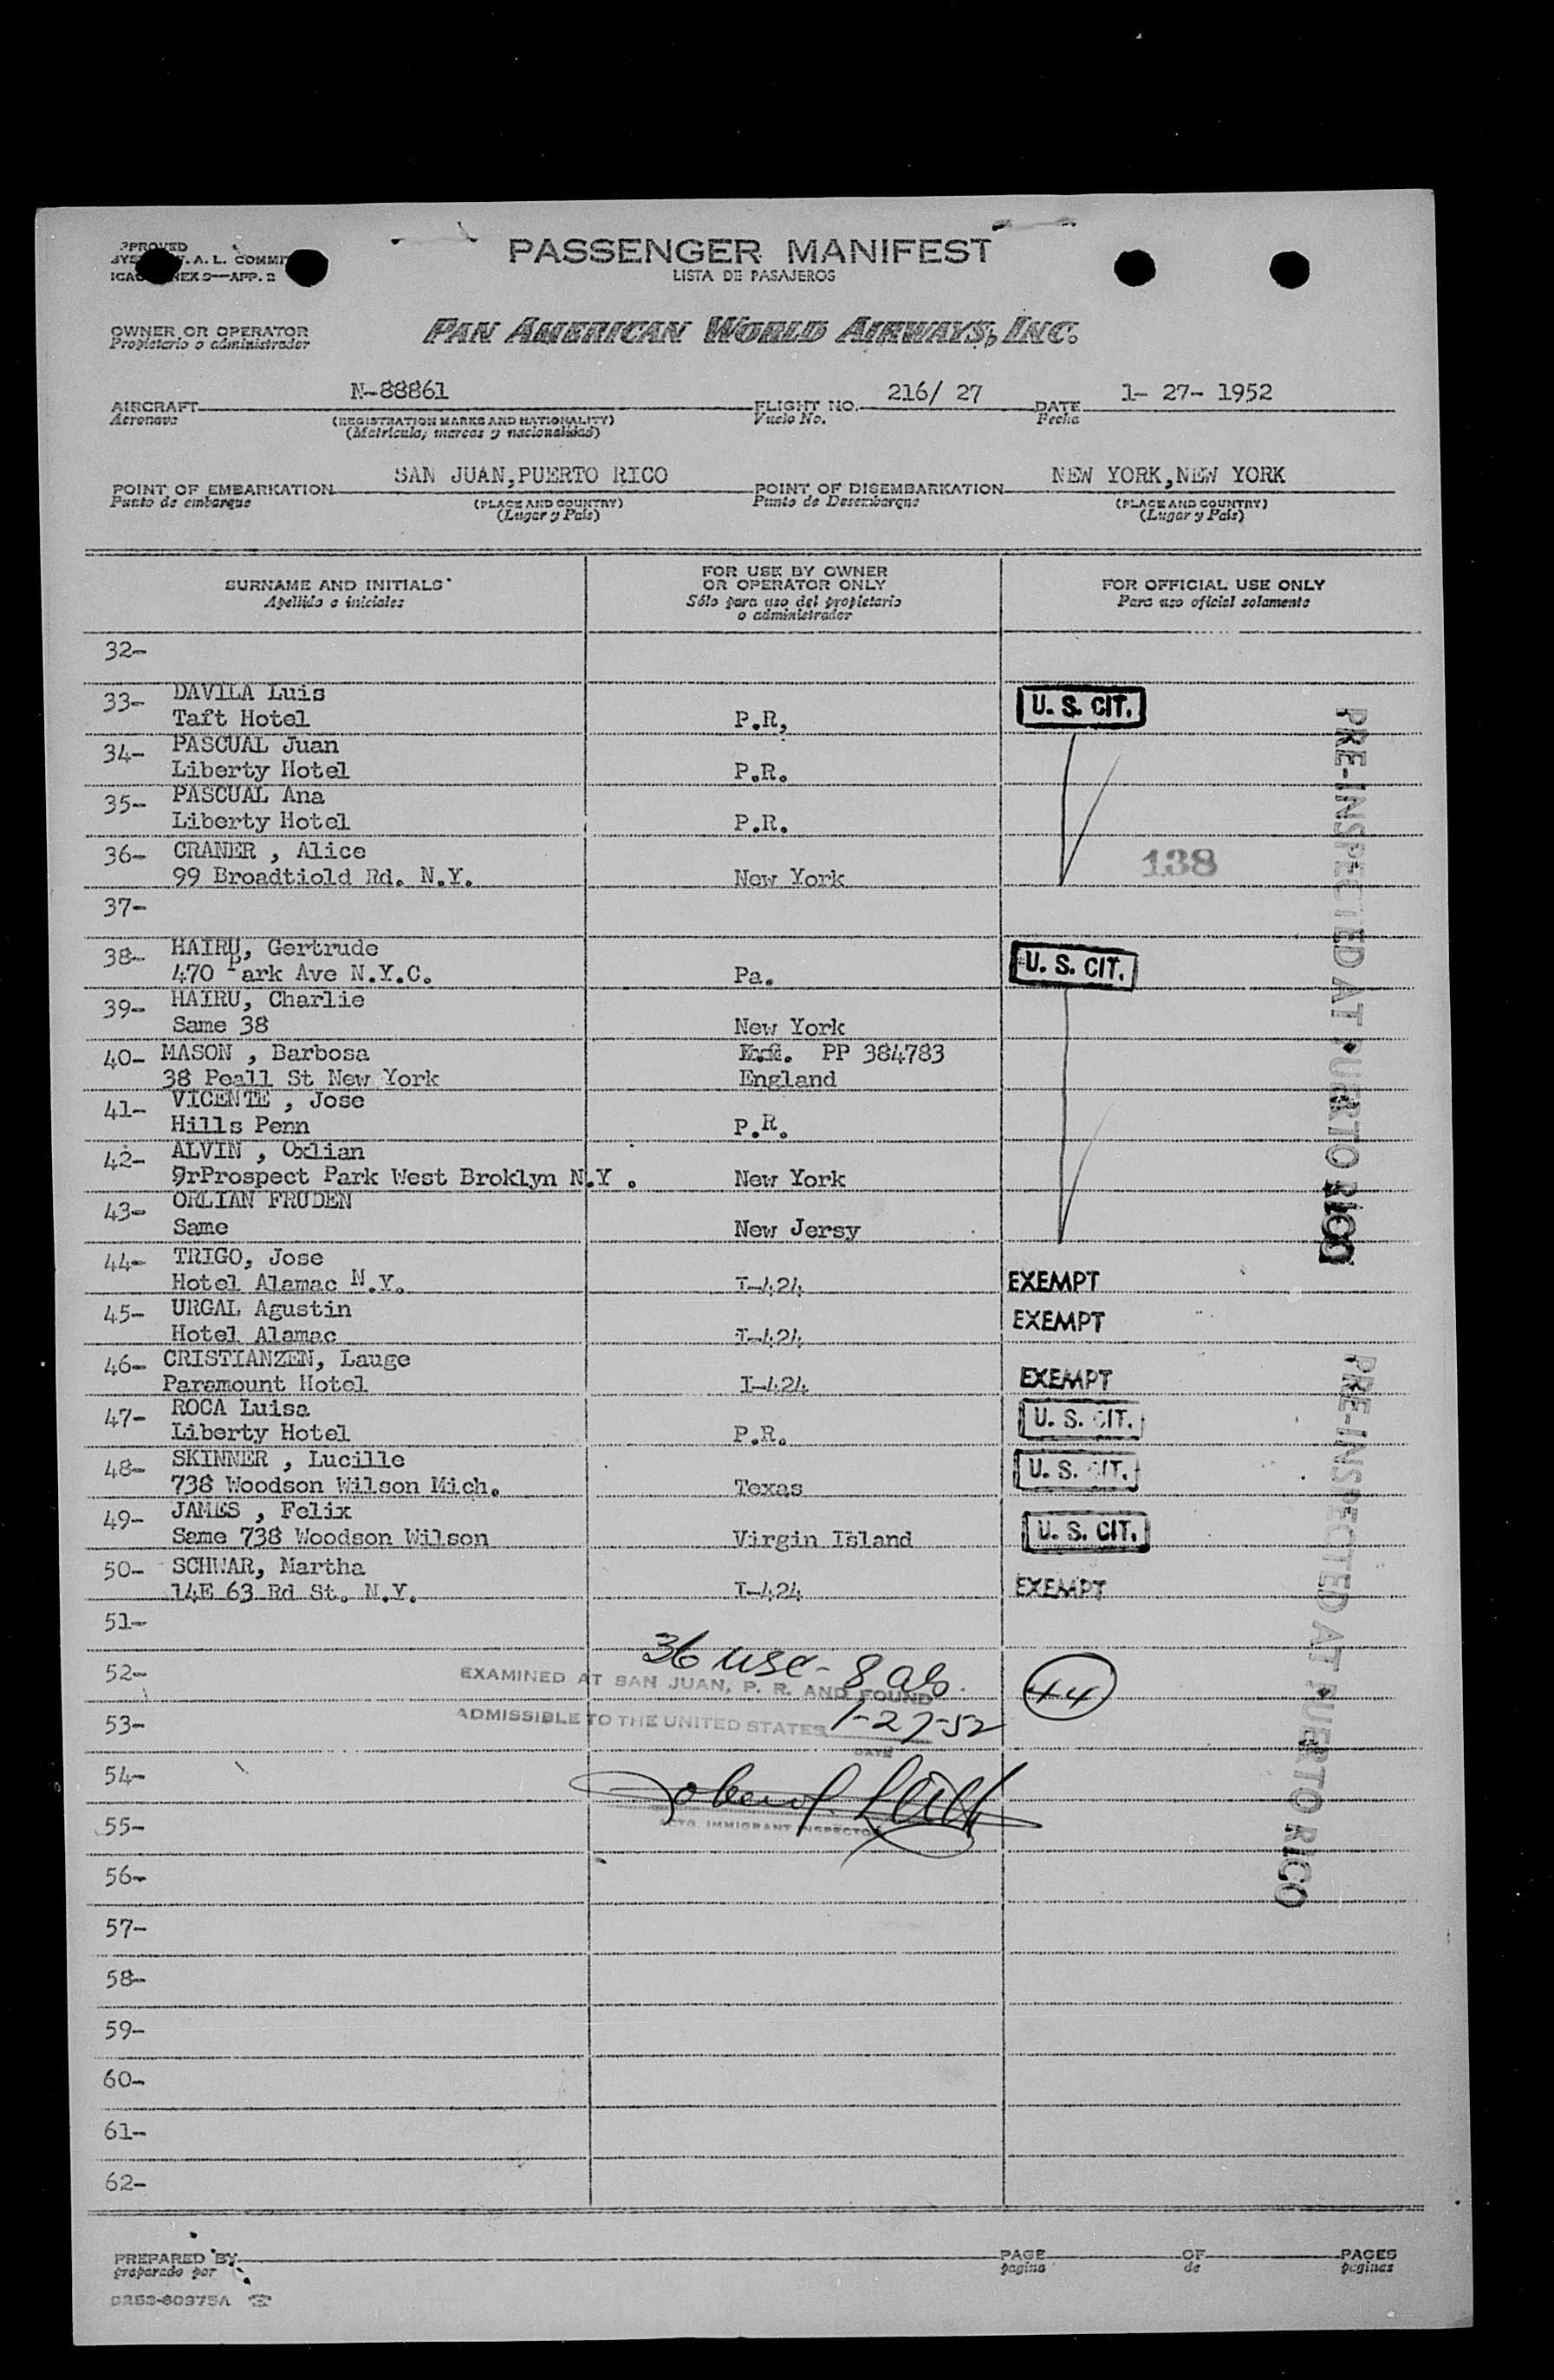 PPROVED
A. L. COMMIT
NEX 9—APP. 2
PASSENGER MANIFEST
LISTA DE PASAJEROS
OWNER OR OPERATOR
Propietario o administrador
PAN AMERICAN WORLD AIRWAYS, INC.
AIRCRAFT N-88861 FLIGHT NO. 216/ 27 DATE 1- 27- 1952
Aeronave (REGISTRATION MARKS AND NATIONALITY) Vuelo No. Fecha
(Matrícula, marcas y nacionalidad)
POINT OF EMBARKATION SAN JUAN,PUERTO RICO POINT OF DISEMBARKATION NEW YORK,NEW YORK
Punto de embarque (PLACE AND COUNTRY) Punto de Desembarque (PLACE AND COUNTRY)
(Lugar y País) (Lugar y País)
SURNAME AND INITIALS FOR USE BY OWNER OR OPERATOR ONLY FOR OFFICIAL USE ONLY
Apellido e iniciales Sólo para uso del propietario o administrador Para uso oficial solamente
32-
33- DAVILA Luis
Taft Hotel P.R, U. S. CIT.
34- PASCUAL Juan
Liberty Hotel P.R.
35- PASCUAL Ana
Liberty Hotel P.R.
36- CRANER , Alice
99 Broadtiold Rd. N.Y. New York 138
37-
38- HAIRU, Gertrude
470 Park Ave N.Y.C. Pa. U. S. CIT.
39- HAIRU, Charlie
Same 38 New York
40- MASON , Barbosa PP 384783
38 Peall St New York England
41- VICENTE , Jose
Hills Penn P.R.
42- ALVIN , Oxlian
9rProspect Park West Broklyn N.Y . New York
43- ORLIAN FRUDEN
Same New Jersy
44- TRIGO, Jose
Hotel Alamac N.Y. I-424 EXEMPT
45- URGAL Agustin
Hotel Alamac I-424 EXEMPT
46- CRISTIANZEN, Lauge
Paramount Hotel I-424 EXEMPT
47- ROCA Luisa
Liberty Hotel P.R. U. S. CIT.
48- SKINNER , Lucille
738 Woodson Wilson Mich. Texas U. S. CIT.
49- JAMES , Felix
Same 738 Woodson Wilson Virgin Island U. S. CIT.
50- SCHWAR, Martha
14E 63 Rd St. N.Y. I-424 EXEMPT
51-
36 usc- 8 als.
52- EXAMINED AT SAN JUAN, P. R. AND FOUND 44
53- ADMISSIBLE TO THE UNITED STATES 1-27-52
DATE
54-
55- ACTG. IMMIGRANT INSPECTOR
56-
57-
58-
59-
60-
61-
62-
PRE-INSPECTED AT PUERTO RICO
PRE-INSPECTED AT PUERTO RICO
PREPARED BY PAGE OF PAGES
preparado por pagina de paginas